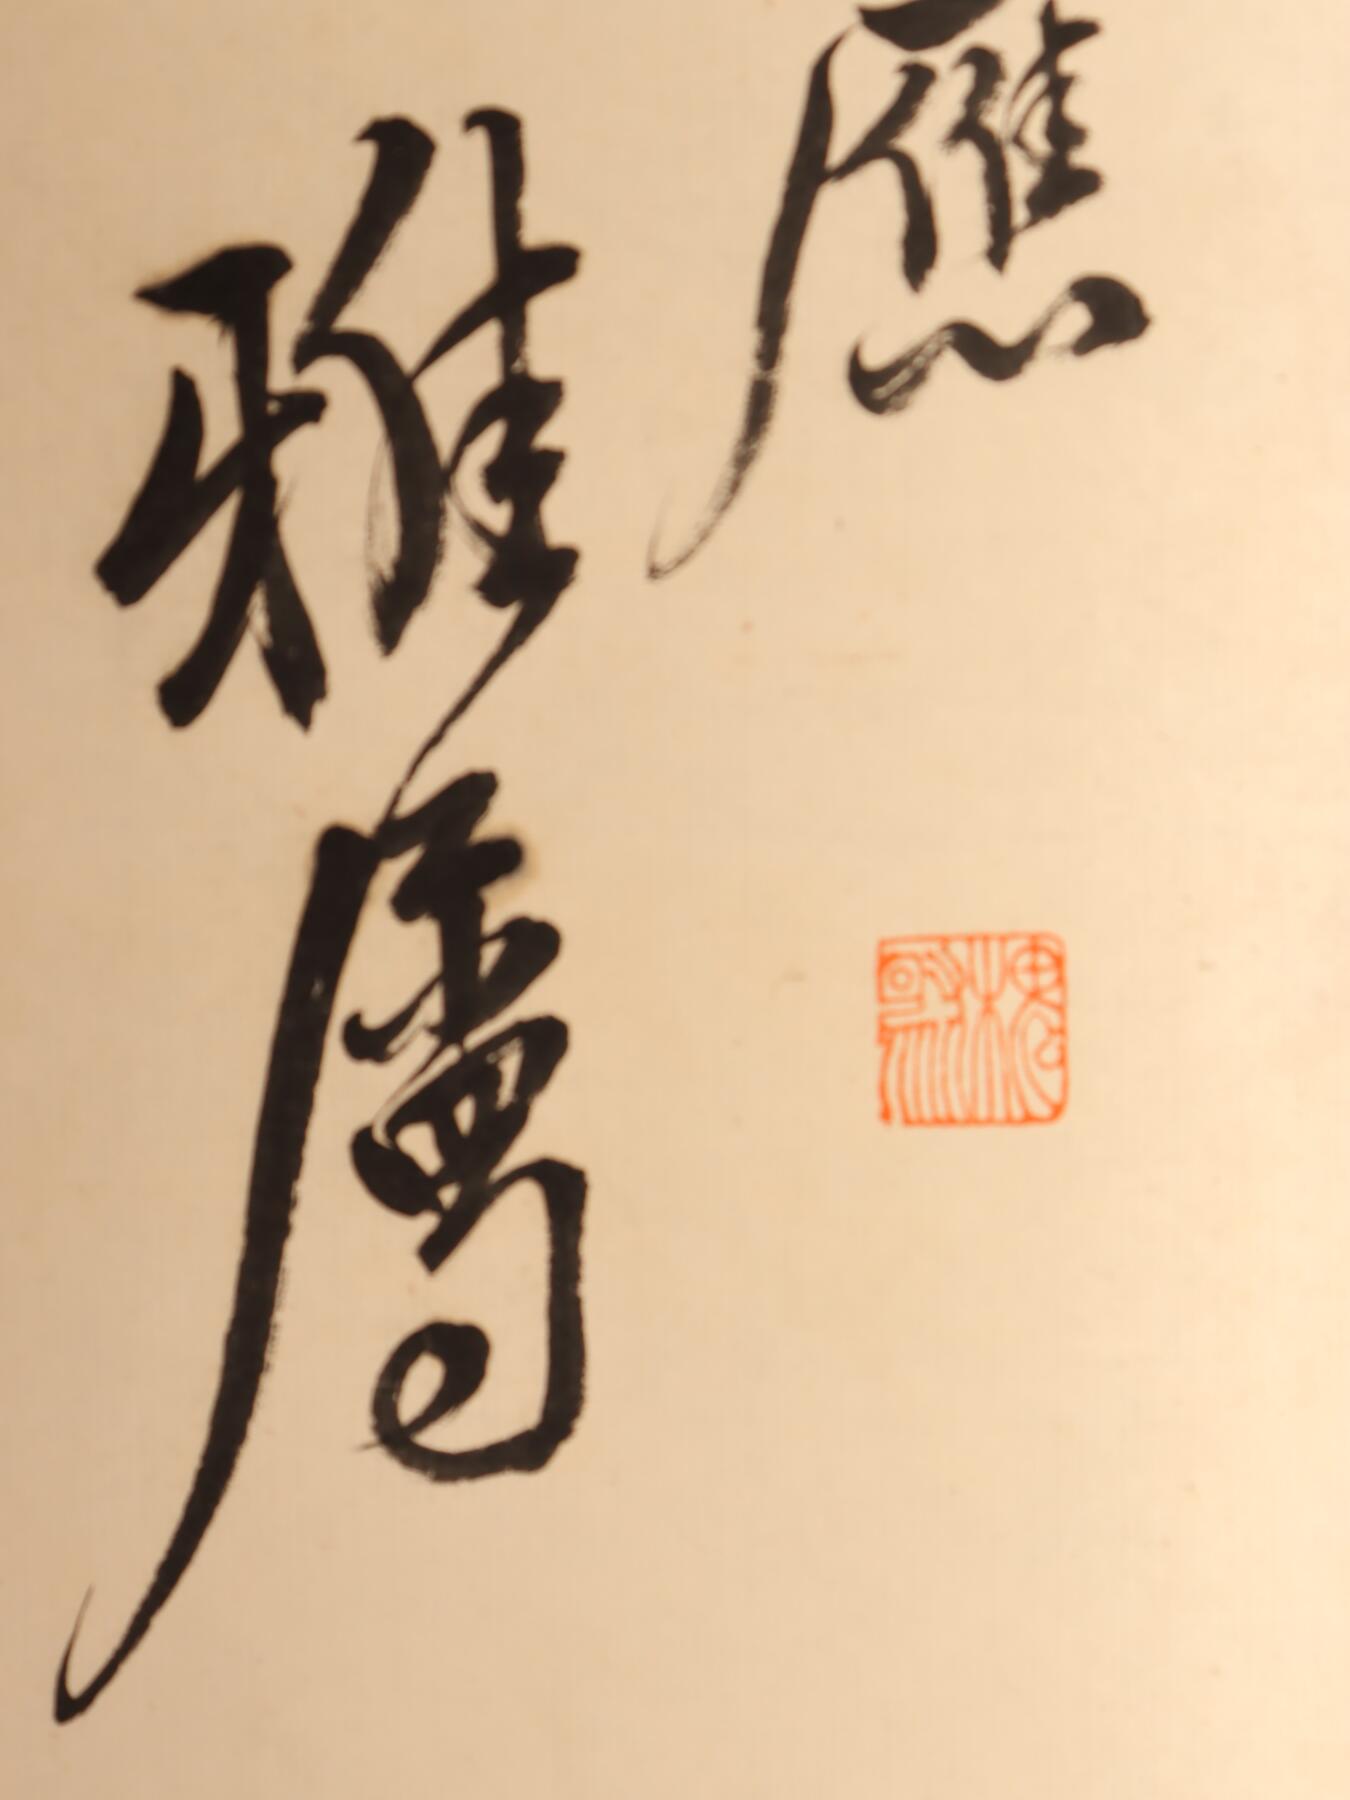 應
雅屬